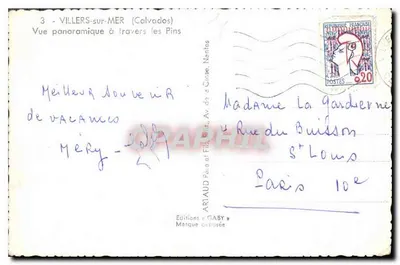 3 - VILLERS-sur-MER (Calvados)
Vue panoramique à travers les Pins
Meilleur souvenir
de vacances
Méry -
ARTAUD Père et Fils, Edit.
Nantes
Editions « GABY »
Marque déposée
REPUBLIQUE FRANCAISE
POSTES
0,20
Madame La Gardienne
Rue du Buisson
St Louis
Paris 10e